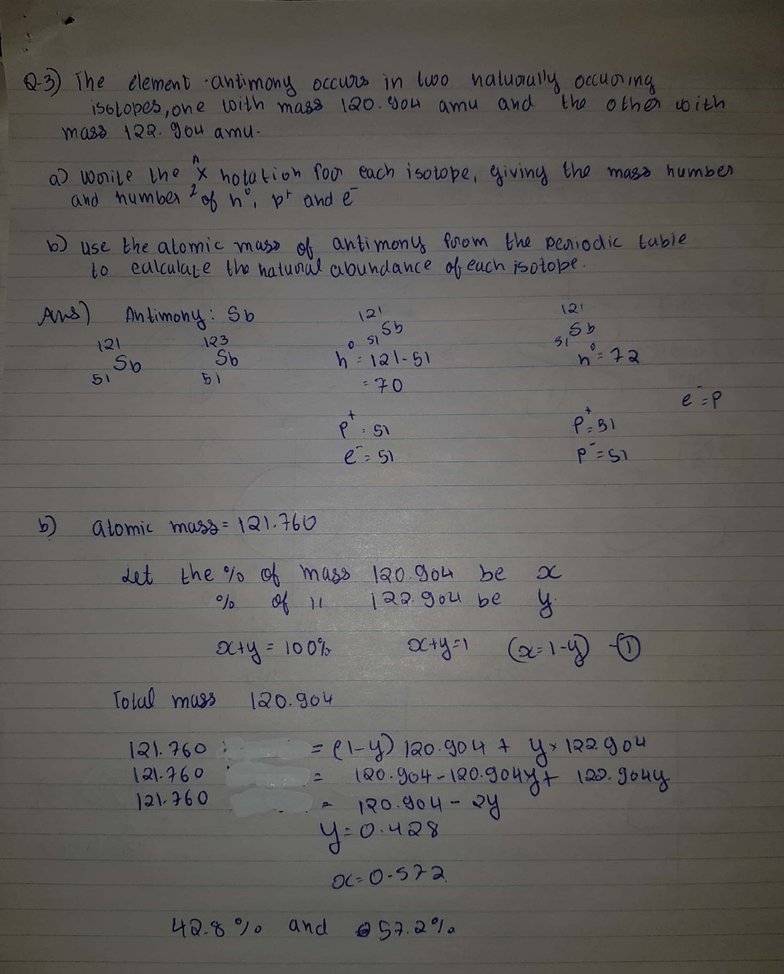 Q-3) The element antimony occurs in two naturally occuring
isotopes, one with mass 120.904 amu and the other with
mass 122.904 amu.
a) write the A Z X notation for each isotope, giving the mass number
and number of n⁰, p⁺ and e⁻
b) use the atomic mass of antimony from the periodic table
to calculate the natural abundance of each isotope.
Ans) Antimony: Sb
121 51 Sb 123 51 Sb 121 51 Sb 121 51 Sb
n⁰ = 121-51 n⁰ = 72
= 70
e⁻ = p
p⁺ = 51 p⁺ = 51
e⁻ = 51 p⁻ = 51
b) atomic mass = 121.760
Let the % of mass 120.904 be x
% of 11 122.904 be y
x+y = 100% x+y=1 (x=1-y) -①
Total mass 120.904
121.760 = (1-y) 120.904 + y × 122.904
121.760 = 120.904 - 120.904y + 122.904y
121.760 = 120.904 - 2y
y = 0.428
x = 0.572
42.8% and 57.2%